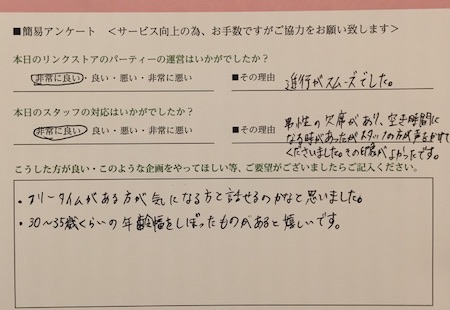 ■簡易アンケート ＜サービス向上の為、お手数ですがご協力をお願い致します＞
本日のリンクストアのパーティーの運営はいかがでしたか?
非常に良い・良い・悪い・非常に悪い
■その理由 進行がスムーズでした。
本日のスタッフの対応はいかがでしたか?
非常に良い・良い・悪い・非常に悪い
■その理由 男性の欠席があり、空き時間に
なる時があったがスタッフの方が声をかけて
くださいました。その印象がよかったです。
こうした方が良い・このような企画をやってほしい等、ご要望がございましたらご記入ください。
・フリータイムがある方が気になる方と話せるのかなと思いました。
・30〜35歳くらいの年齢幅をしぼったものがあると嬉しいです。